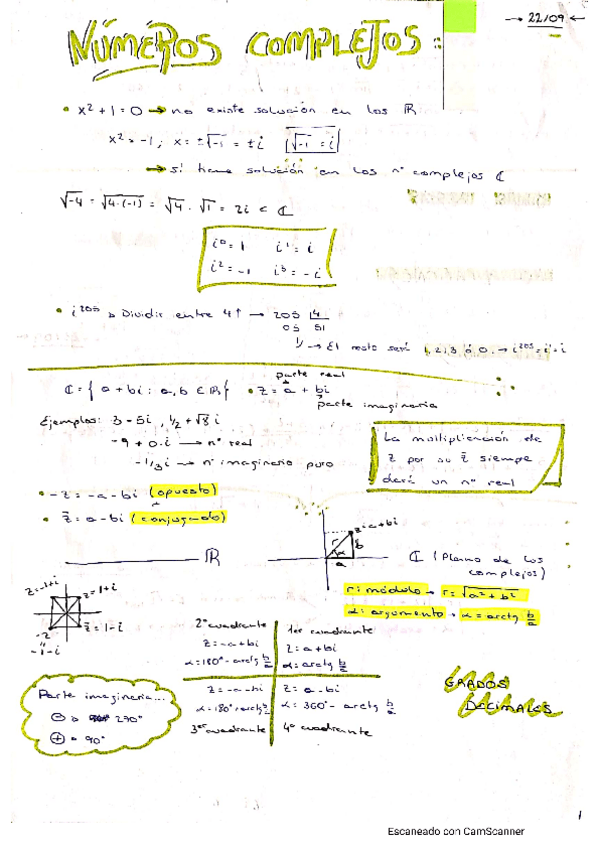 → 22/09 ←
NÚMEROS COMPLEJOS:
• x² + 1 = 0 → no existe solución en los ℝ
x² = -1; x = ±√-1 = ±i √-1 = i
→ sí tiene solución en los nº complejos ℂ
√-4 = √4·(-1) = √4 · √1 = 2i ∈ ℂ
i⁰ = 1 i¹ = i
i² = -1 i³ = -i
• i²⁰⁵ → Dividir entre 4↑ → 205 |4
05 51
1/ → El resto será 1, 2, 3 ó 0 → i²⁰⁵ = i¹ = i
parte real
ℂ = { a + bi : a, b ∈ ℝ } • z = a + bi
parte imaginaria
Ejemplos: 3 - 5i, 1/2 + √8 i
-9 + 0·i → nº real
-1/3 i → nº imaginario puro
La multiplicación de
z por su z̄ siempre
dará un nº real
• -z = -a - bi (opuesto)
• z̄ = a - bi (conjugado)
ℝ
z = a + bi
r
α
b
a
ℂ (Plano de los
complejos)
r: módulo → r = √a² + b²
α: argumento → α = arctg b/a
z = -1+i
z = 1+i
-z
-1-i
z̄ = 1-i
2º cuadrante
z = -a + bi
α = 180° - arctg b/a
1er cuadrante
z = a + bi
α = arctg b/a
z = -a - bi
α = 180° + arctg b/a
3er cuadrante
z = a - bi
α = 360° - arctg b/a
4º cuadrante
Parte imaginaria...
⊖ → 270°
⊕ = 90°
GRADOS
DECIMALES
1
Escaneado con CamScanner